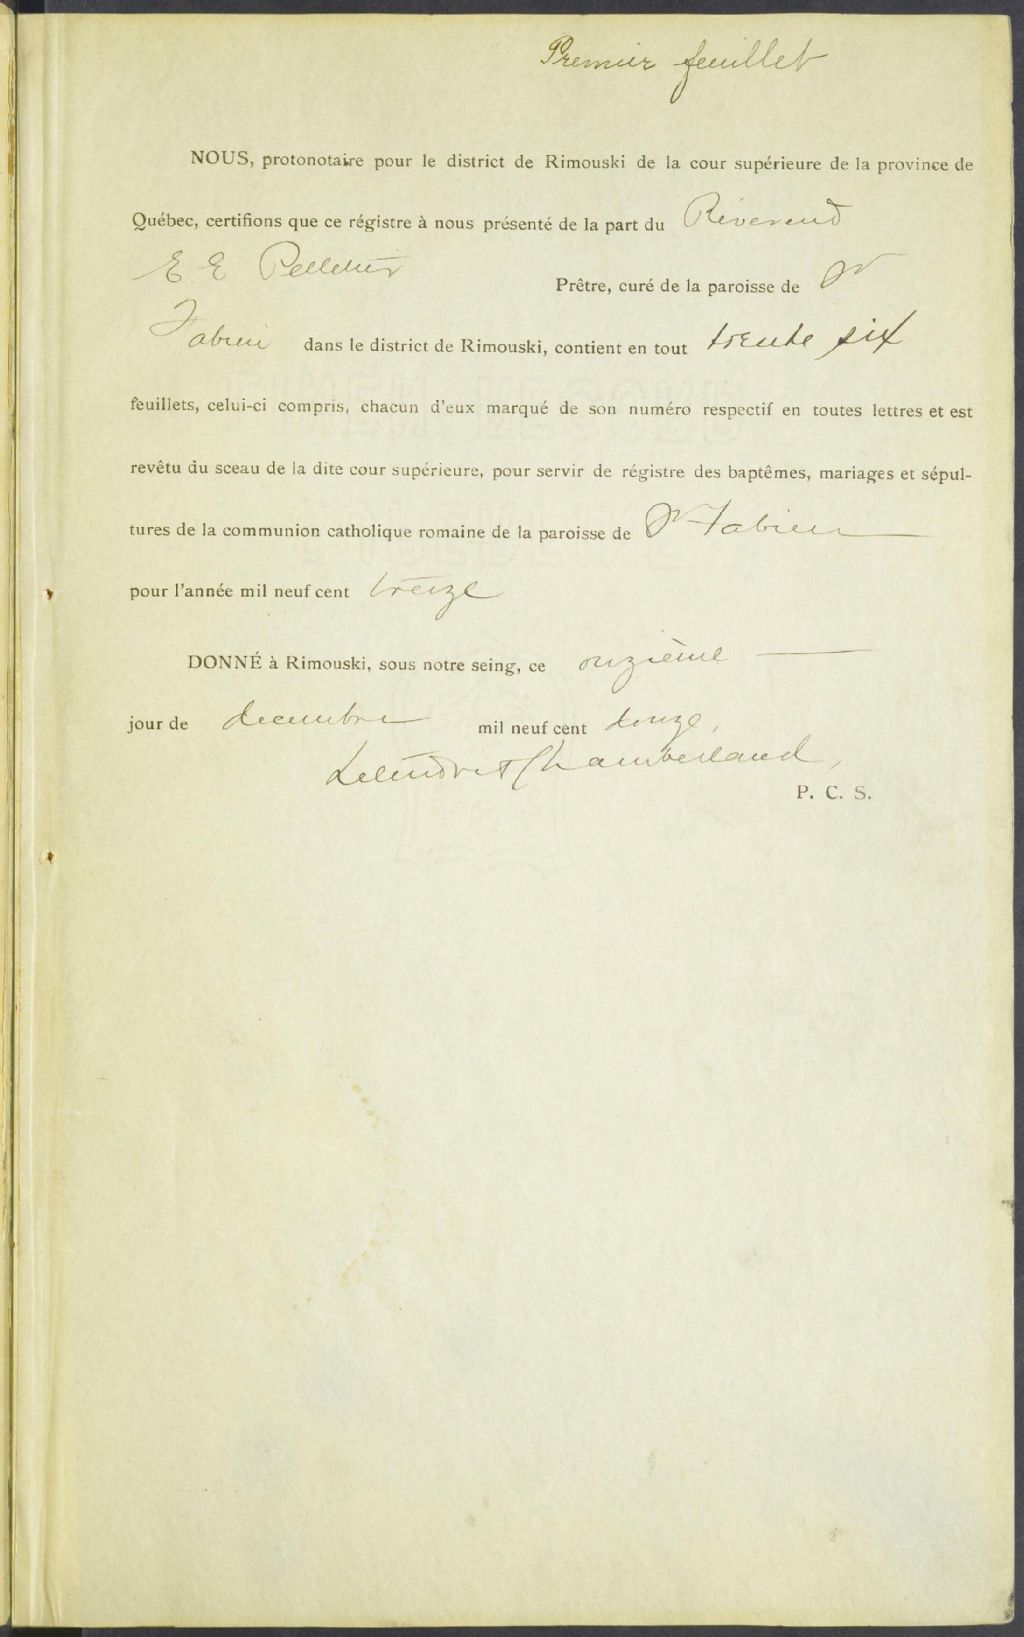 Premier feuillet
NOUS, protonotaire pour le district de Rimouski de la cour supérieure de la province de
Québec, certifions que ce régistre à nous présenté de la part du Révérend
E E Pelletier Prêtre, curé de la paroisse de St
Fabien dans le district de Rimouski, contient en tout trente six
feuillets, celui-ci compris, chacun d'eux marqué de son numéro respectif en toutes lettres et est
revêtu du sceau de la dite cour supérieure, pour servir de régistre des baptêmes, mariages et sépul-
tures de la communion catholique romaine de la paroisse de St Fabien
pour l'année mil neuf cent treize
DONNÉ à Rimouski, sous notre seing, ce onzième
jour de decembre mil neuf cent douze,
Chamberland,
P. C. S.